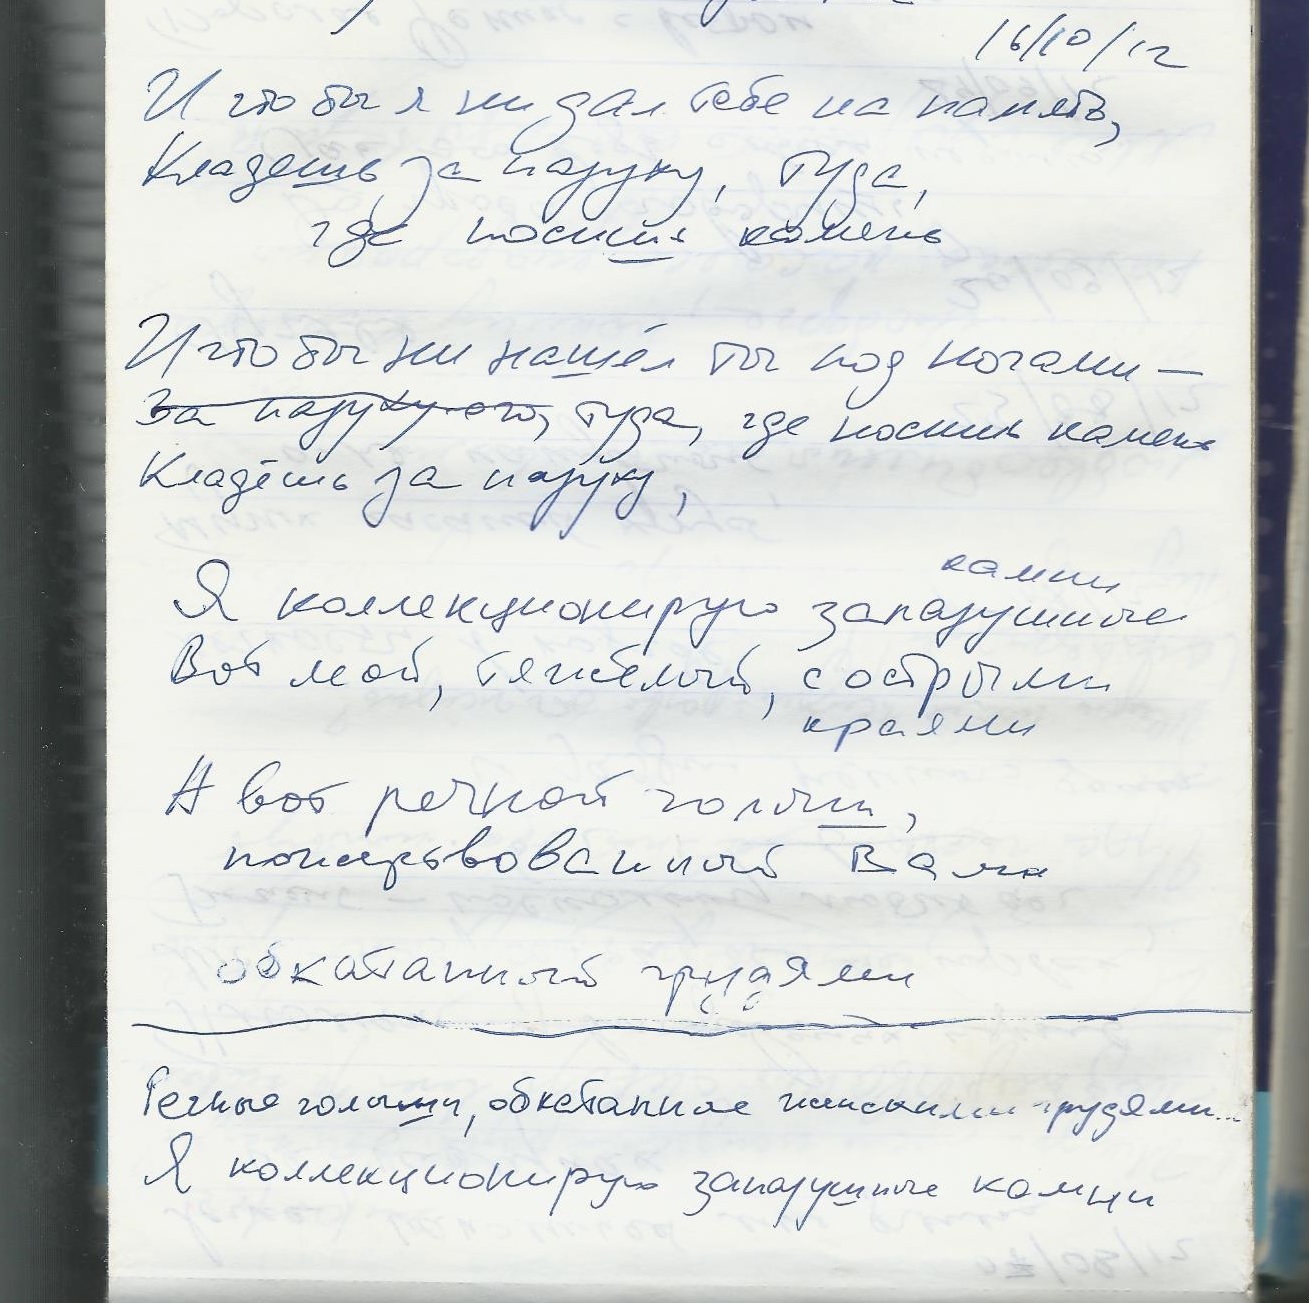 16/10/12
И что бы я ни дал тебе на память,
Кладешь за пазуху, туда,
где носишь камень
И что бы ни нашёл ты под ногами —
За пазуху его, туда, где носишь камень
Кладёшь за пазуху,
камни
Я коллекционирую запазушные
Вот мой, тяжёлый, с острыми
краями
А вот речной голыш,
пожертвованный Вами
обкатанный грудями
Речные голыши, обкатанные женскими грудями...
Я коллекционирую запазушные камни